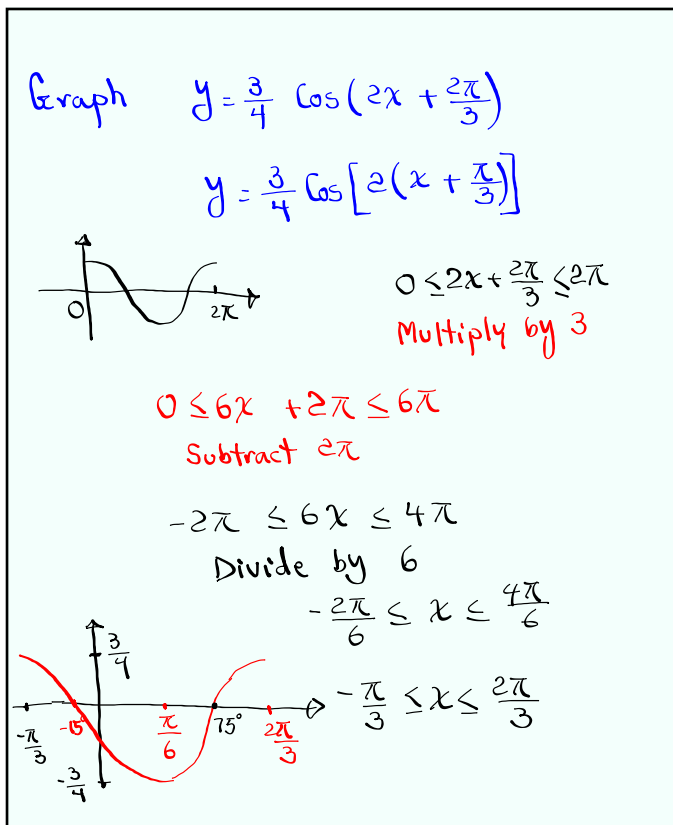 Graph y = 3/4 Cos(2x + 2π/3)
y = 3/4 Cos[2(x + π/3)]
0 2π
0 ≤ 2x + 2π/3 ≤ 2π
Multiply by 3
0 ≤ 6x + 2π ≤ 6π
Subtract 2π
-2π ≤ 6x ≤ 4π
Divide by 6
-2π/6 ≤ x ≤ 4π/6
-π/3 ≤ x ≤ 2π/3
3/4
-π/3 -15° π/6 75° 2π/3
-3/4